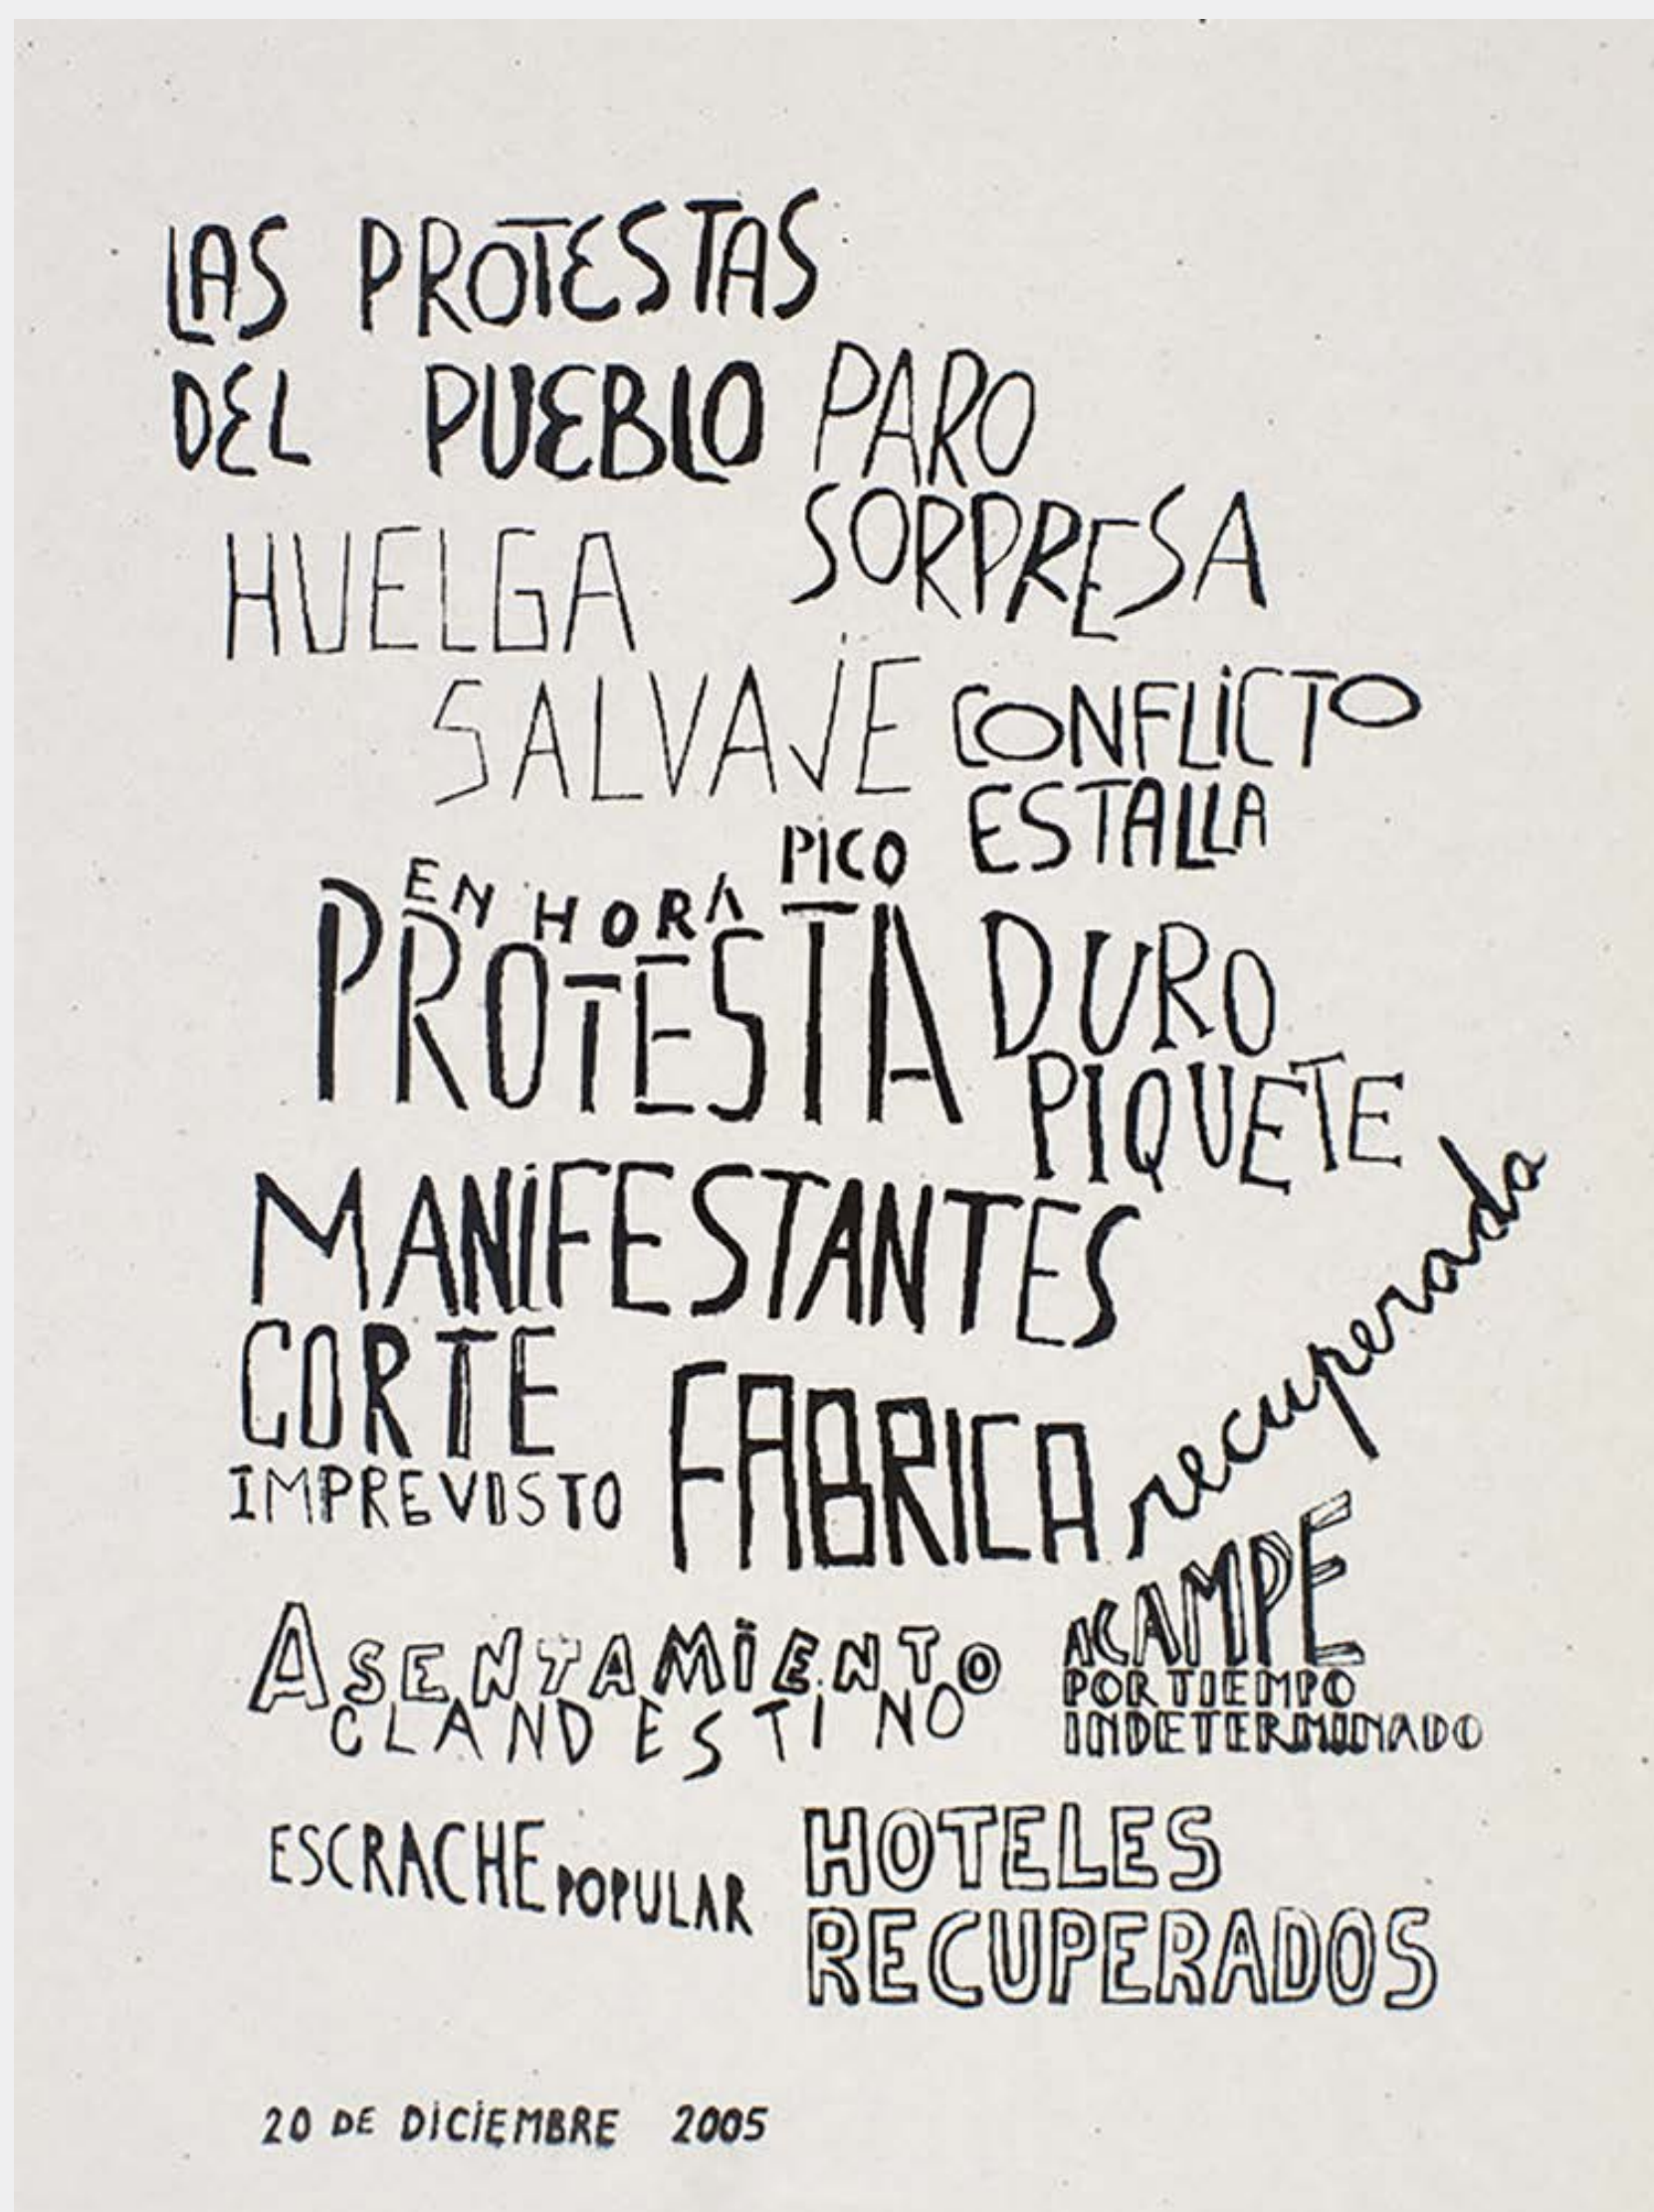 LAS PROTESTAS
DEL PUEBLO
PARO
SORPRESA
HUELGA
SALVAJE
CONFLICTO
ESTALLA
EN HORA PICO
PROTESTA
DURO
PIQUETE
MANIFESTANTES
CORTE
IMPREVISTO
FABRICA recuperada
ASENTAMIENTO
CLANDESTINO
ACAMPE
POR TIEMPO
INDETERMINADO
ESCRACHE POPULAR
HOTELES
RECUPERADOS
20 DE DICIEMBRE 2005